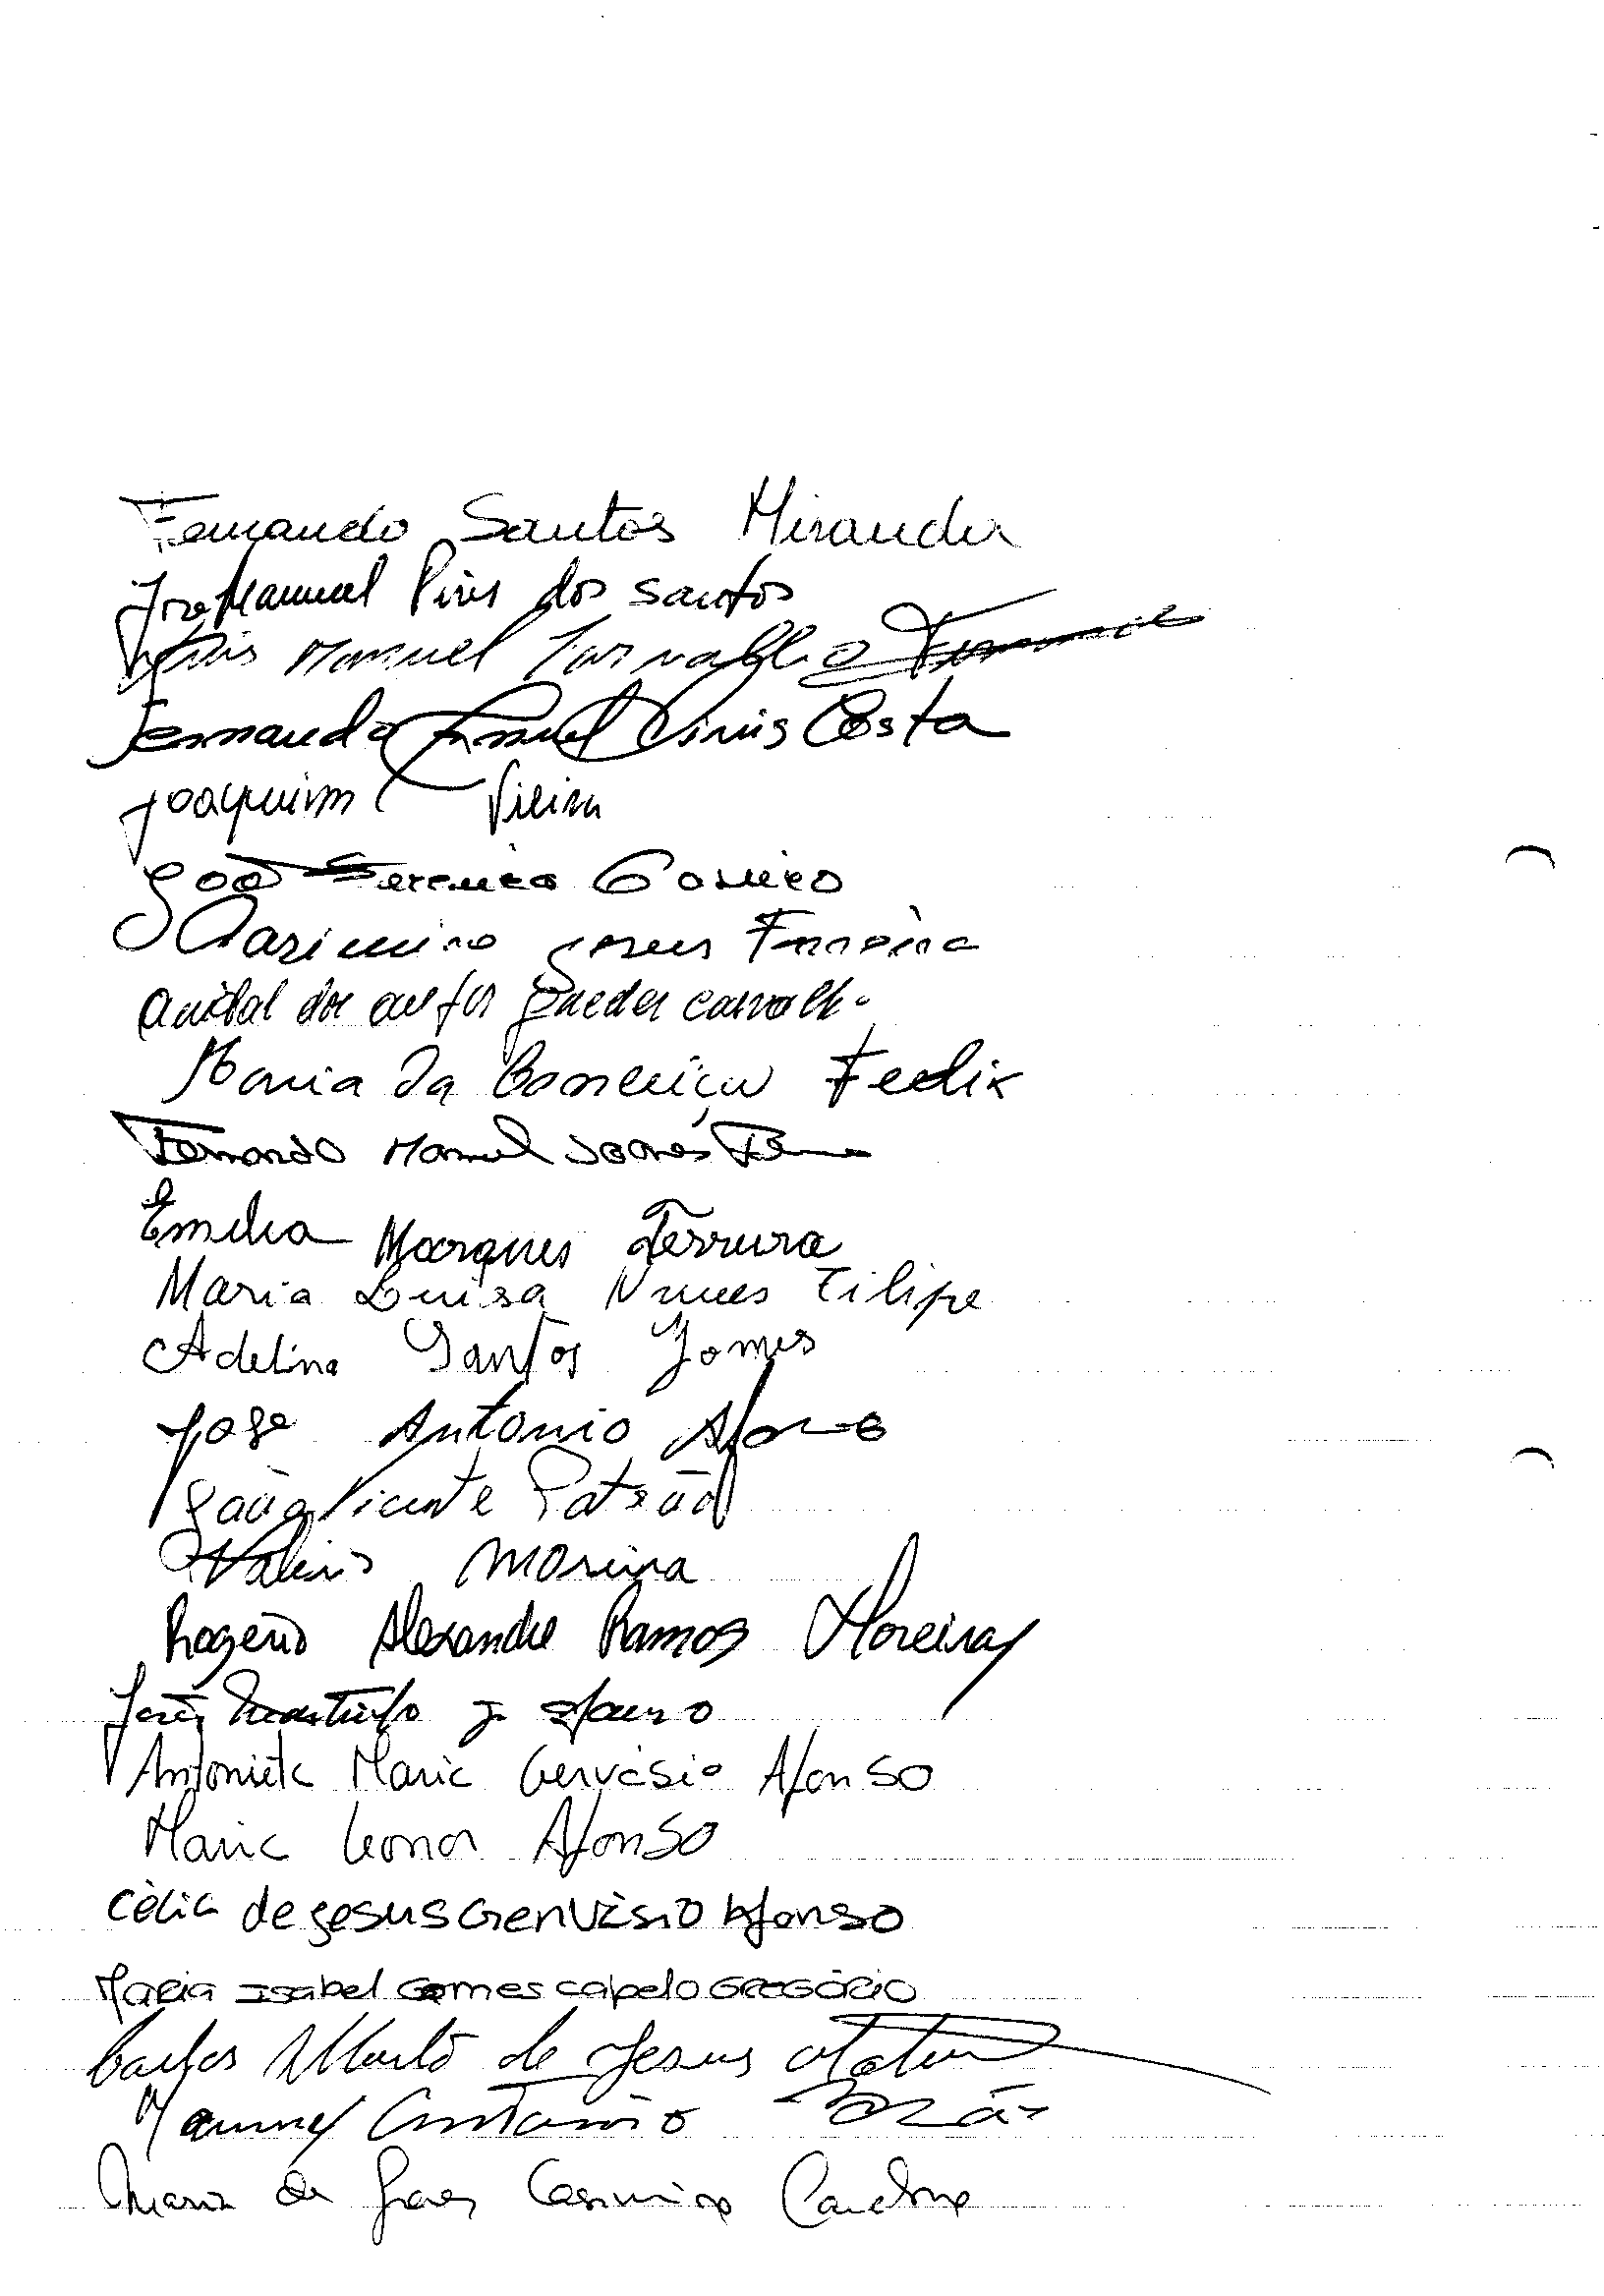 Fernando Santos Miranda
José Manuel Pires dos Santos
Luis Manuel Carvalho
Fernando Manuel Dinis Costa
Joaquim Vieira
João Ferreira
Casimiro Gomes Ferreira
dos Guedes Carvalho
Maria da Conceição Fedix
Fernando Manuel Soares
Emilia Marques Ferreira
Maria Luisa Nunes Filipe
Adelina Santos Gomes
José Antonio Afonso
João Vicente Patrão
Moreira
Rogério Alexandre Ramos Moreira
José J. Afonso
Antonieta Maria Gervásio Afonso
Maria Leonor Afonso
Cèlia de Jesus Gervàsio Afonso
Maria Isabel Gomes Capelo GREGÓRIO
Carlos Alberto de Jesus
Manuel
Maria de Casimiro Cardoso